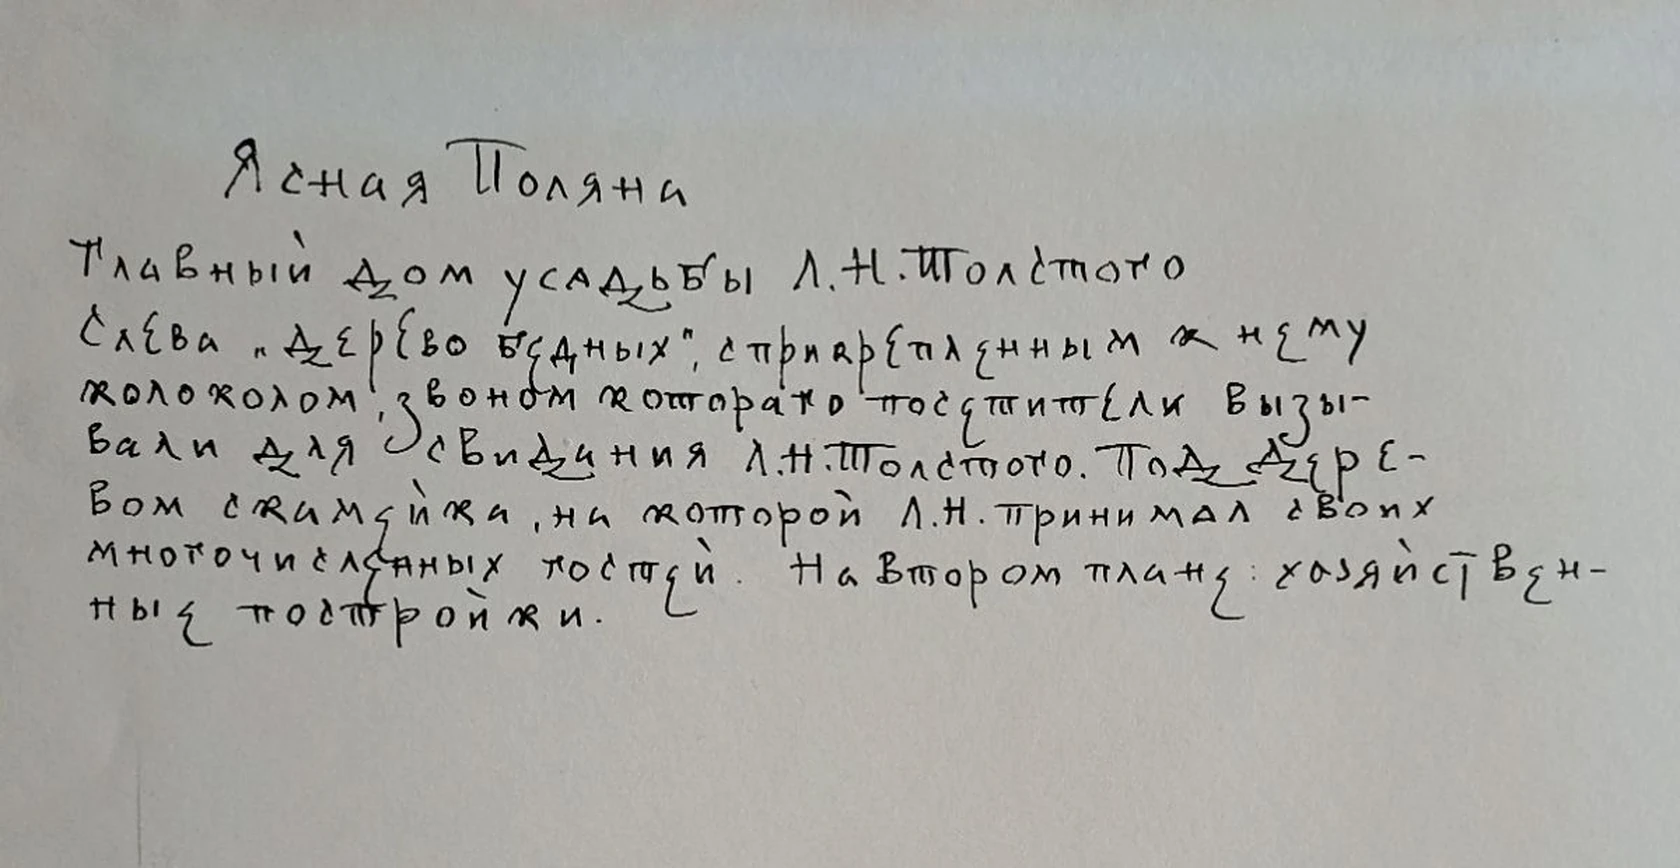 Ясная Поляна
Главный дом усадьбы Л.Н.Толстого
Слева „дерево бедных", с прикрепленным к нему
колоколом, звоном котораго посетители вызы-
вали для свидания Л.Н.Толстого. Под дере-
вом скамейка, на которой Л.Н. принимал своих
многочисленных гостей. На втором плане: хозяйствен-
ные постройки.